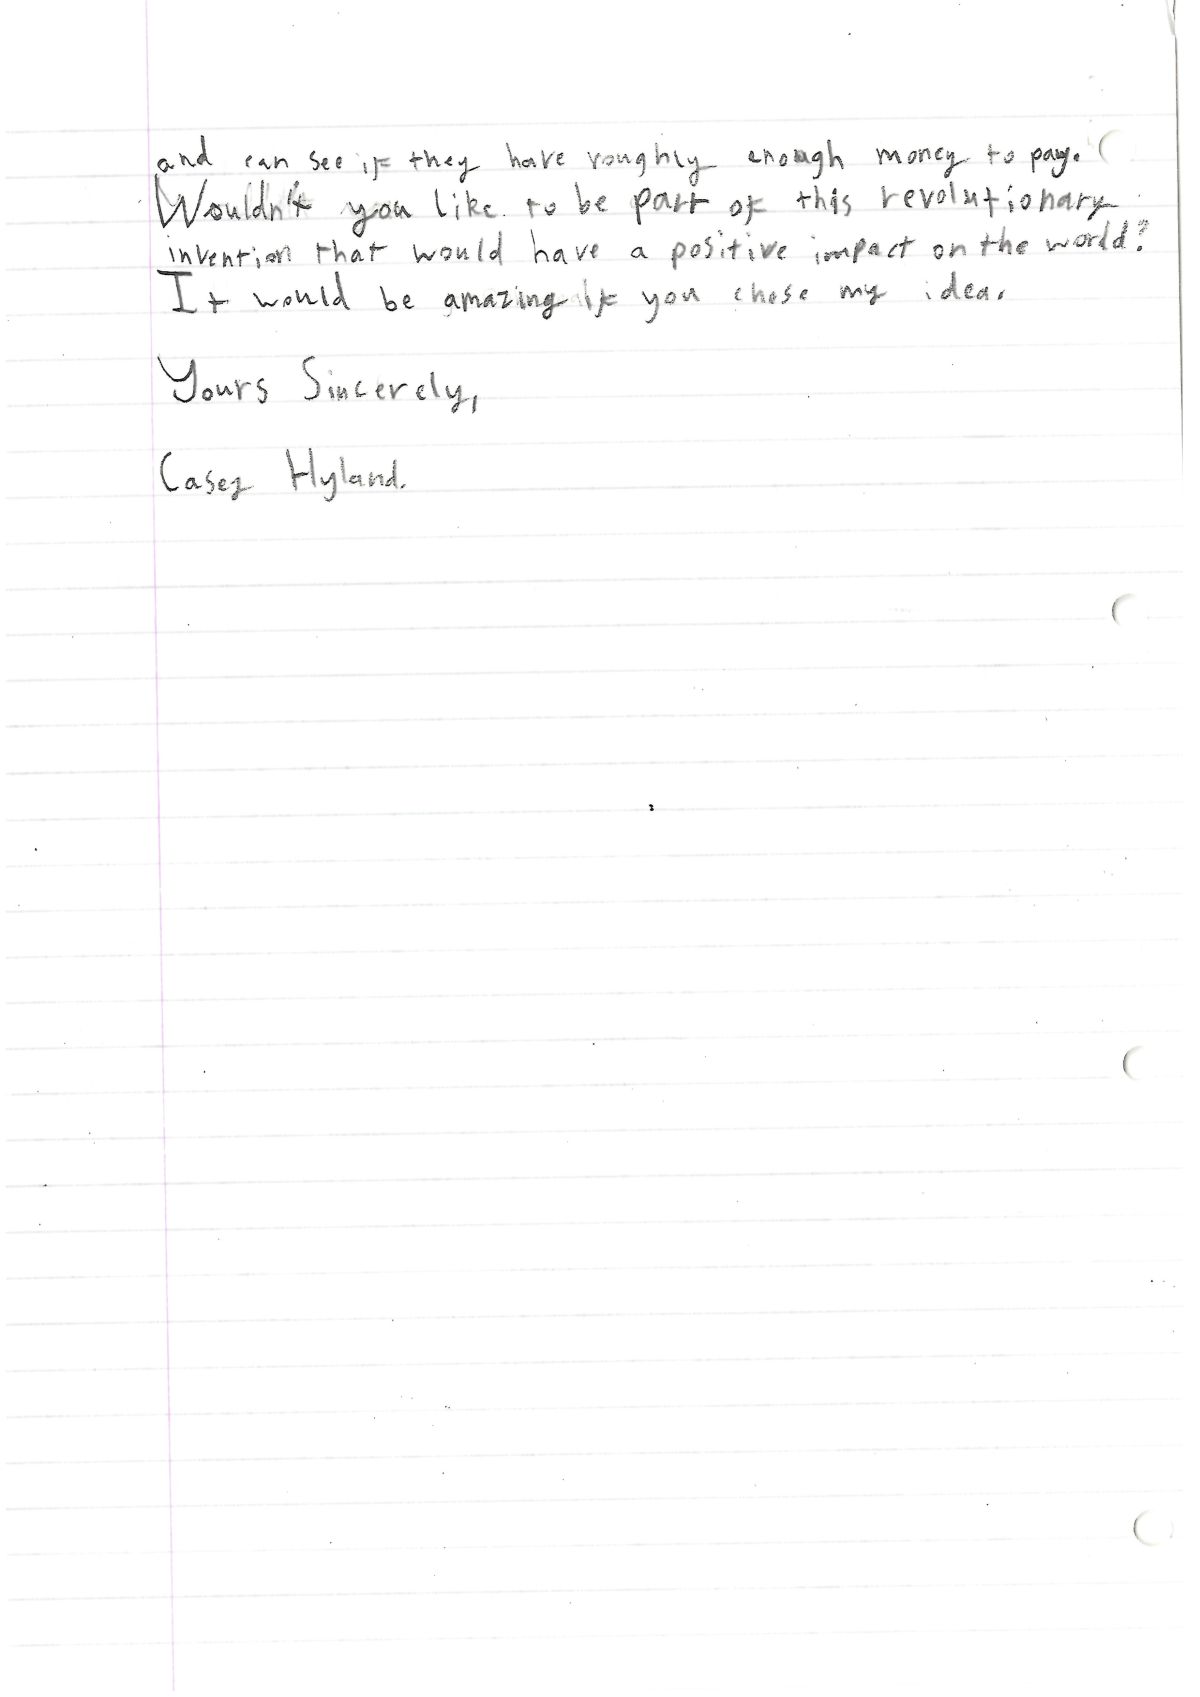 and can see if they have roughly enough money to pay.
Wouldn't you like to be part of this revolutionary
invention that would have a positive impact on the world?
It would be amazing if you chose my idea.
Yours Sincerely,
Casey Hyland.